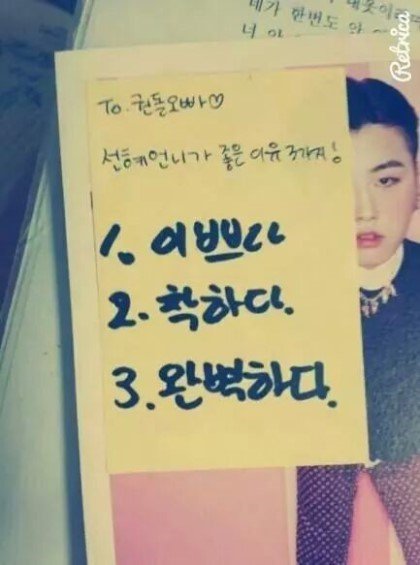 네가 한번도 안
너 안
Retrica
To. 권돌오빠♡
선혜언니가 좋은 이유 3가지!
1. 이쁘다
2. 착하다.
3. 완벽하다.